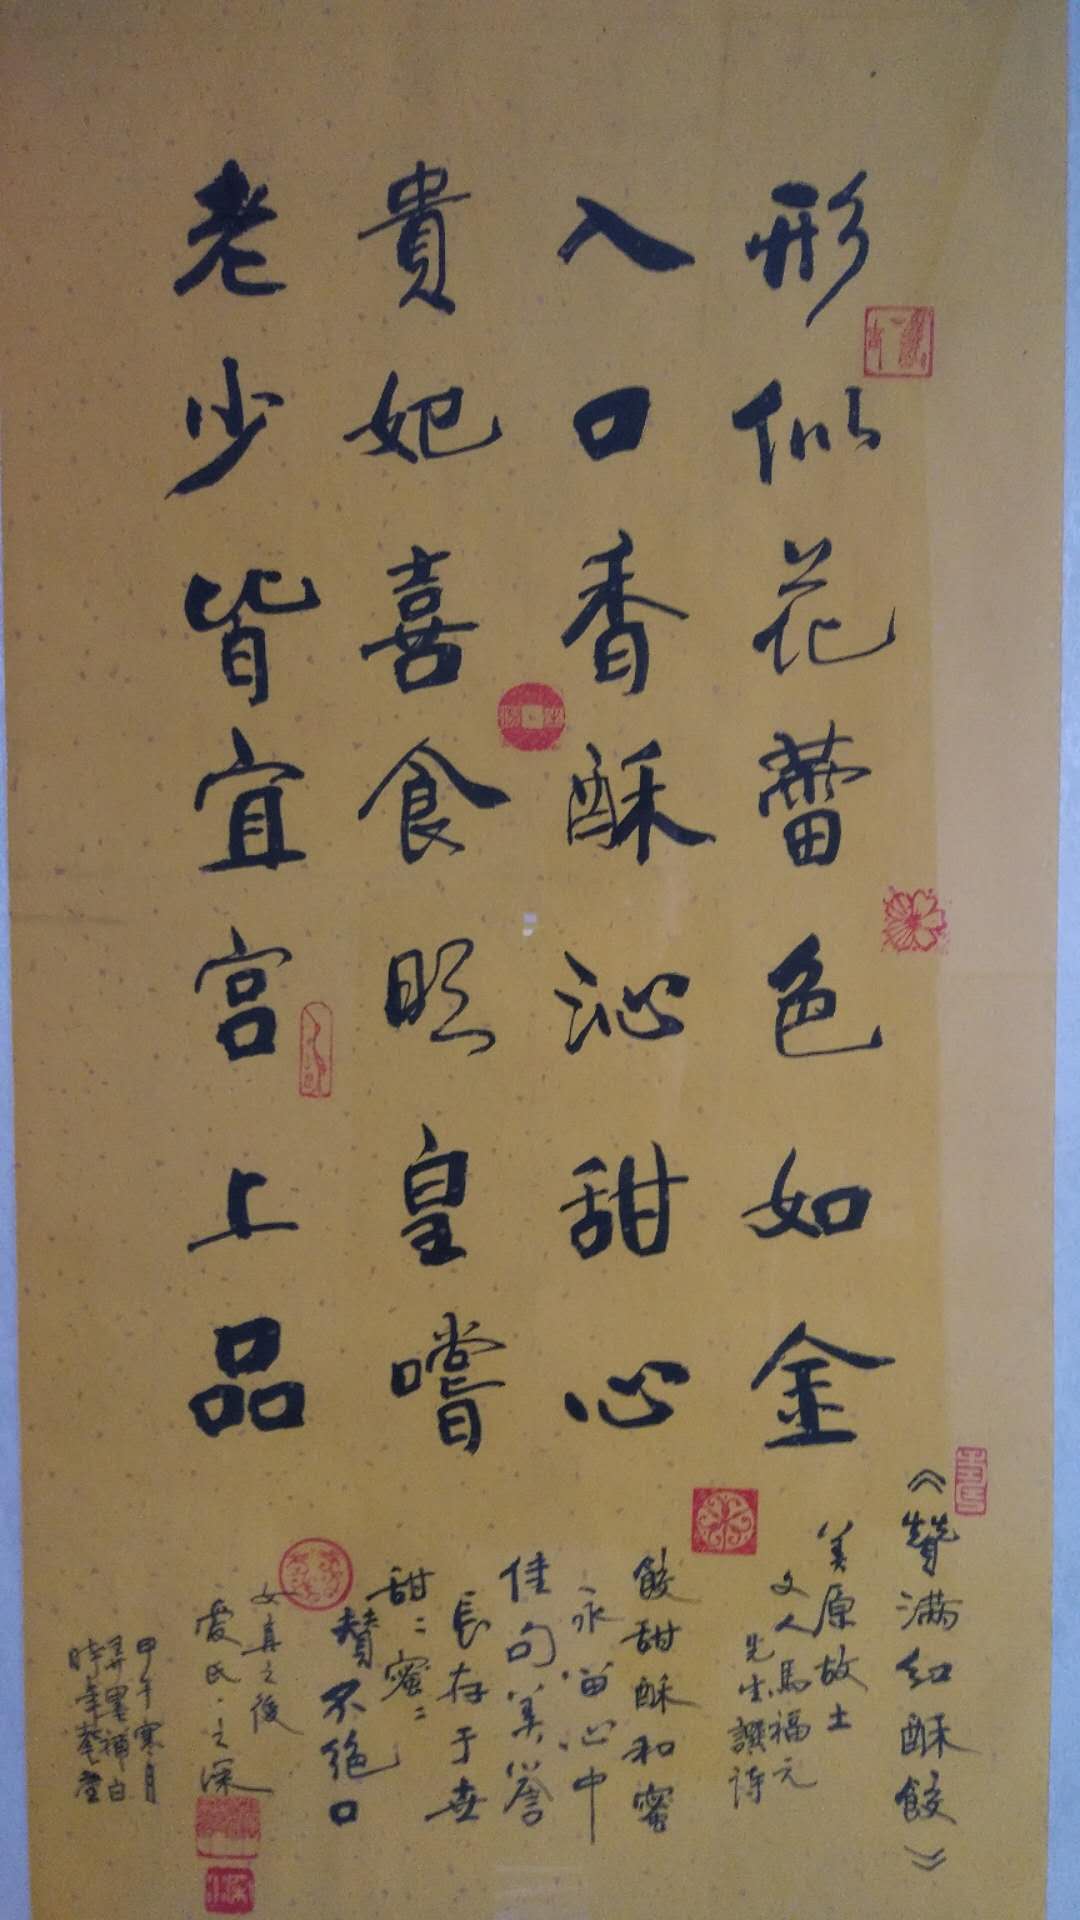 形似花蕾色如金
入口香酥沁甜心
貴妃喜食明皇嚐
老少皆宜宮上品
《贊滿口酥餃》
美原故土
文人馬福元
先生譔詩
餃甜酥和蜜
永留心中
佳句美譽
長存于世
甜〻蜜〻
贊不絕口
女真之後
愛氏之深
甲午寒月
弄墨補白
時年